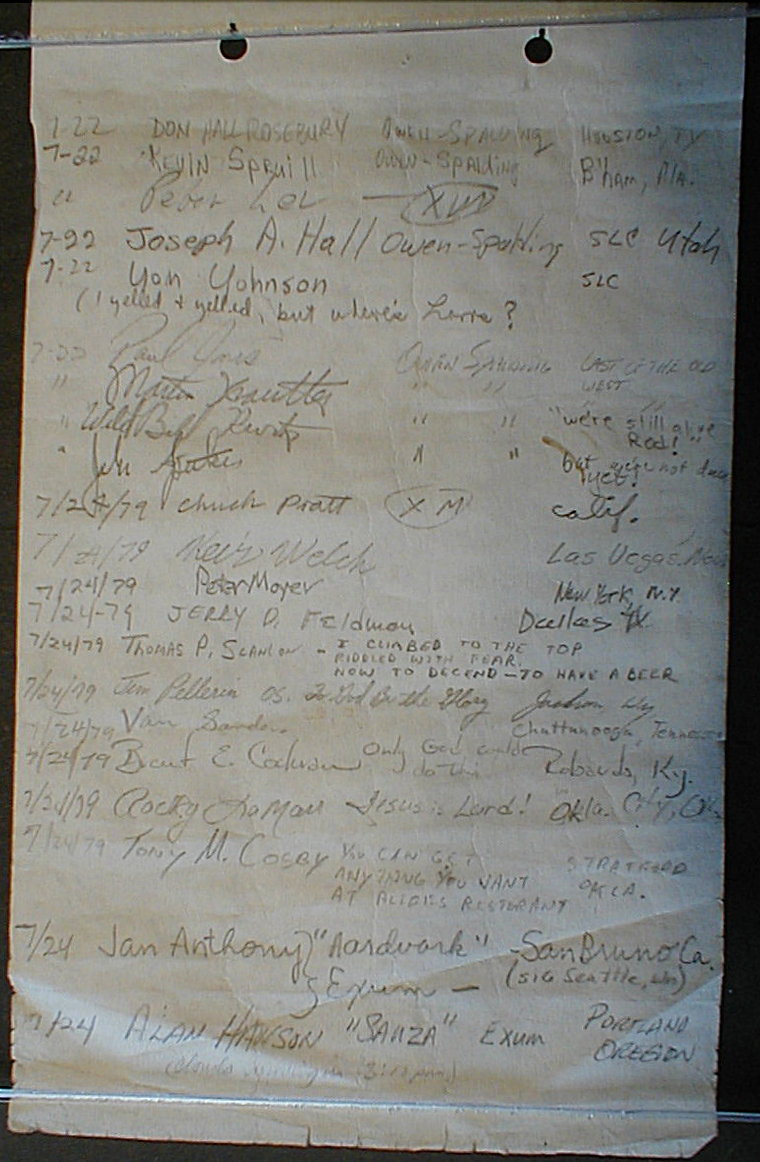 7-22 DON HALL ROSEBURY OWEN-SPALDING HOUSTON, TX
7-22 KEVIN Spruill OWEN-SPAlding B'Ham, Ala.
" Peter
7-22 Joseph A. Hall Owen-Spalding SLC Utah
7-22 Yon Yohnson SLC
(I yelled & yelled, but where's ?
7-22 Paul OWEN SPALDING LAST OF THE OLD
WEST
" Martin " "
" Wild Bill " " "we're still alive
Red!"
" " " but we're not down
yet!
7/24/79 Chuck Pratt XM calif.
7/24/79 Welch Las Vegas, Nev
7/24/79 Peter Moyer New York, N.Y
7/24-79 JERRY D. Feldman Dallas TX
7/24/79 THOMAS P. SCANLON - I CLIMBED TO THE TOP
RIDDLED WITH FEAR.
NOW TO DECEND - TO HAVE A BEER
7/24/79 Jim Pellerin OS. To God Be the Glory Jackson Wy
7/24/79 Van Sanders Chattanooga, Tennessee
7/24/79 Brent E. Cochran Only God could Robards, Ky.
do this
7/24/79 Rocky Jesus is Lord! Okla. City, OK.
7/24/79 TONY M. COSBY YOU CAN GET STRATFORD
ANYTHING YOU WANT OKLA.
AT ALICES RESTORANT
7/24 Jan Anthony "Aardvark" - San Bruno Ca.
Exum - (sig Seattle, Wn)
7/24 ALAN HANSON "SAUZA" EXUM PORTLAND
OREGON